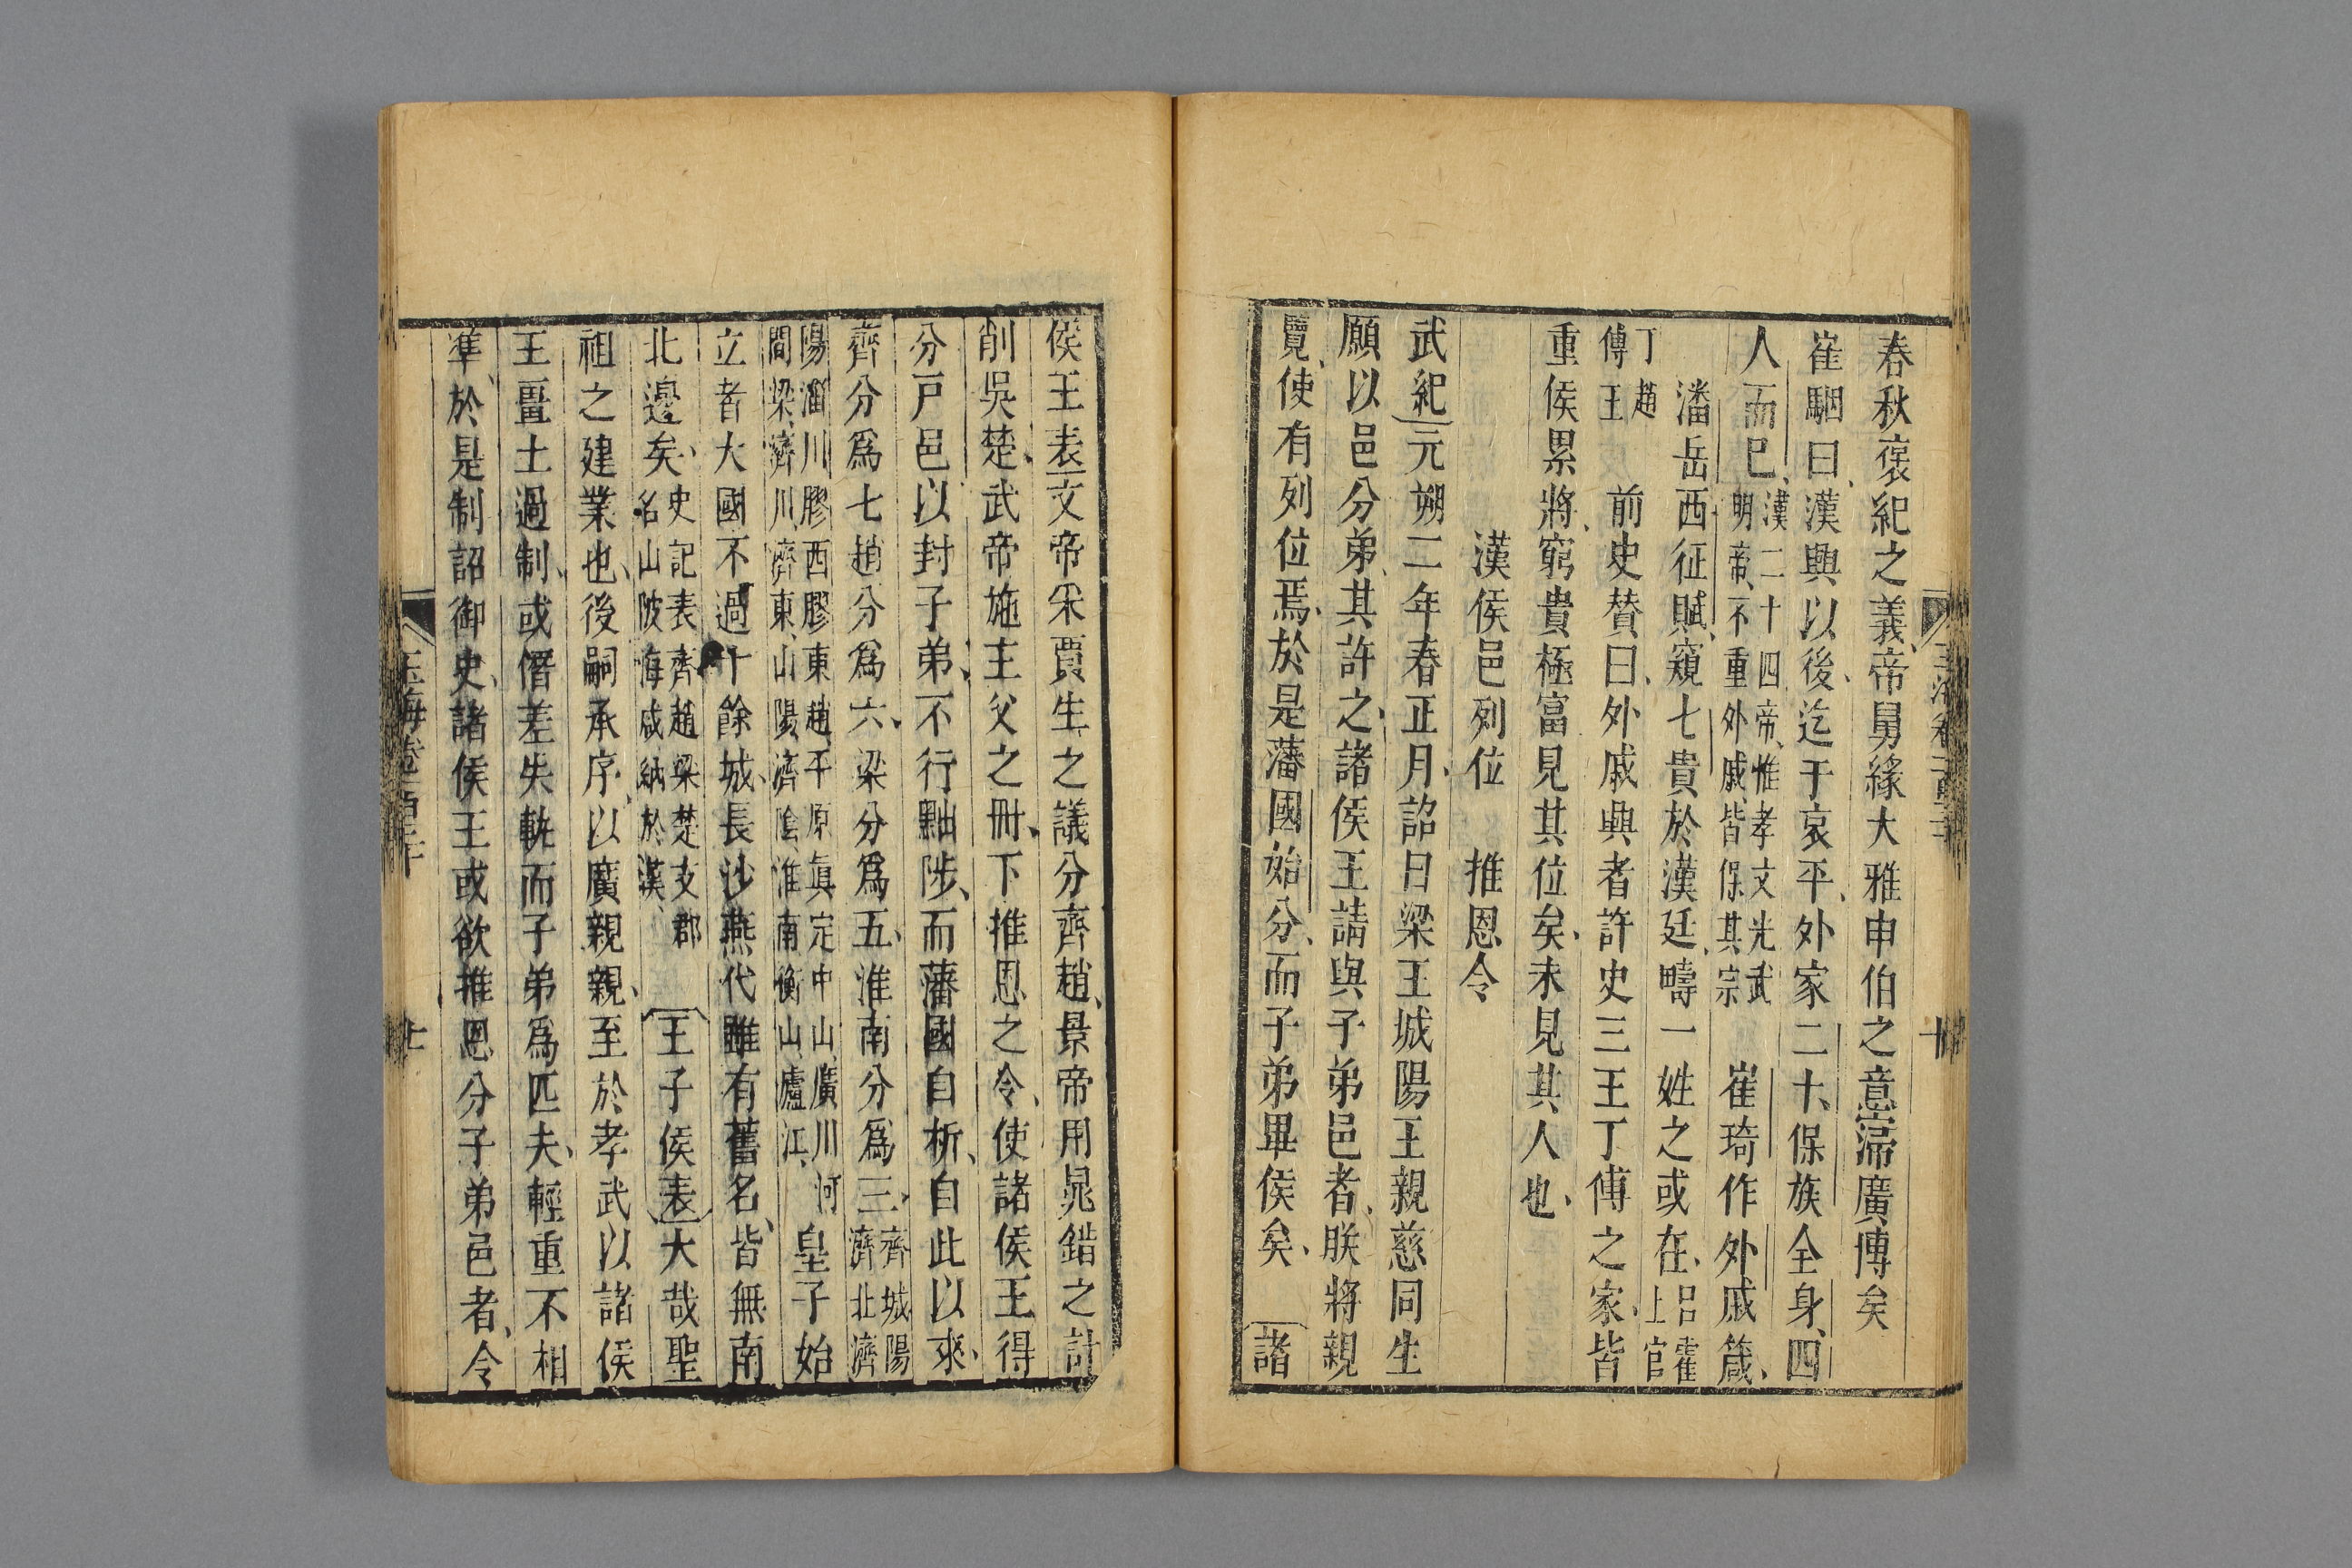 春秋襃紀之義帝舅緣大雅申伯之意寖廣博矣
崔駰曰漢興以後迄于哀平外家二十保族全身四
人而已漢二十四帝惟孝文光武
明帝不重外戚皆保其宗崔琦作外戚箴
潘岳西征賦窺七貴於漢廷疇一姓之或在呂霍
上官
丁趙
傅王前史贊曰外戚興者許史三王丁傅之家皆
重侯累將窮貴極富見其位矣未見其人也
漢侯邑列位 推恩令
武紀元朔二年春正月詔曰梁王城陽王親慈同生
願以邑分弟其許之諸侯王請與子弟邑者朕將親
覽使有列位焉於是藩國始分而子弟畢侯矣 諸
侯王表文帝采賈生之議分齊趙景帝用晁錯之計
削吳楚武帝施主父之冊下推恩之令使諸侯王得
分戸邑以封子弟不行黜陟而藩國自析自此以來
齊分爲七趙分爲六梁分爲五淮南分爲三齊城陽
濟北濟
陽淄川膠西膠東趙平原眞定中山廣川河
間梁濟川濟東山陽濟陰淮南衡山廬江皇子始
立者大國不過十餘城長沙燕代雖有舊名皆無南
北邊矣史記表齊趙梁楚支郡
名山陂海咸納於漢王子侯表大哉聖
祖之建業也後嗣承序以廣親親至於孝武以諸侯
王畺土過制或僭差失軌而子弟爲匹夫輕重不相
準於是制詔御史諸侯王或欲推恩分子弟邑者令
玉海卷一百三十